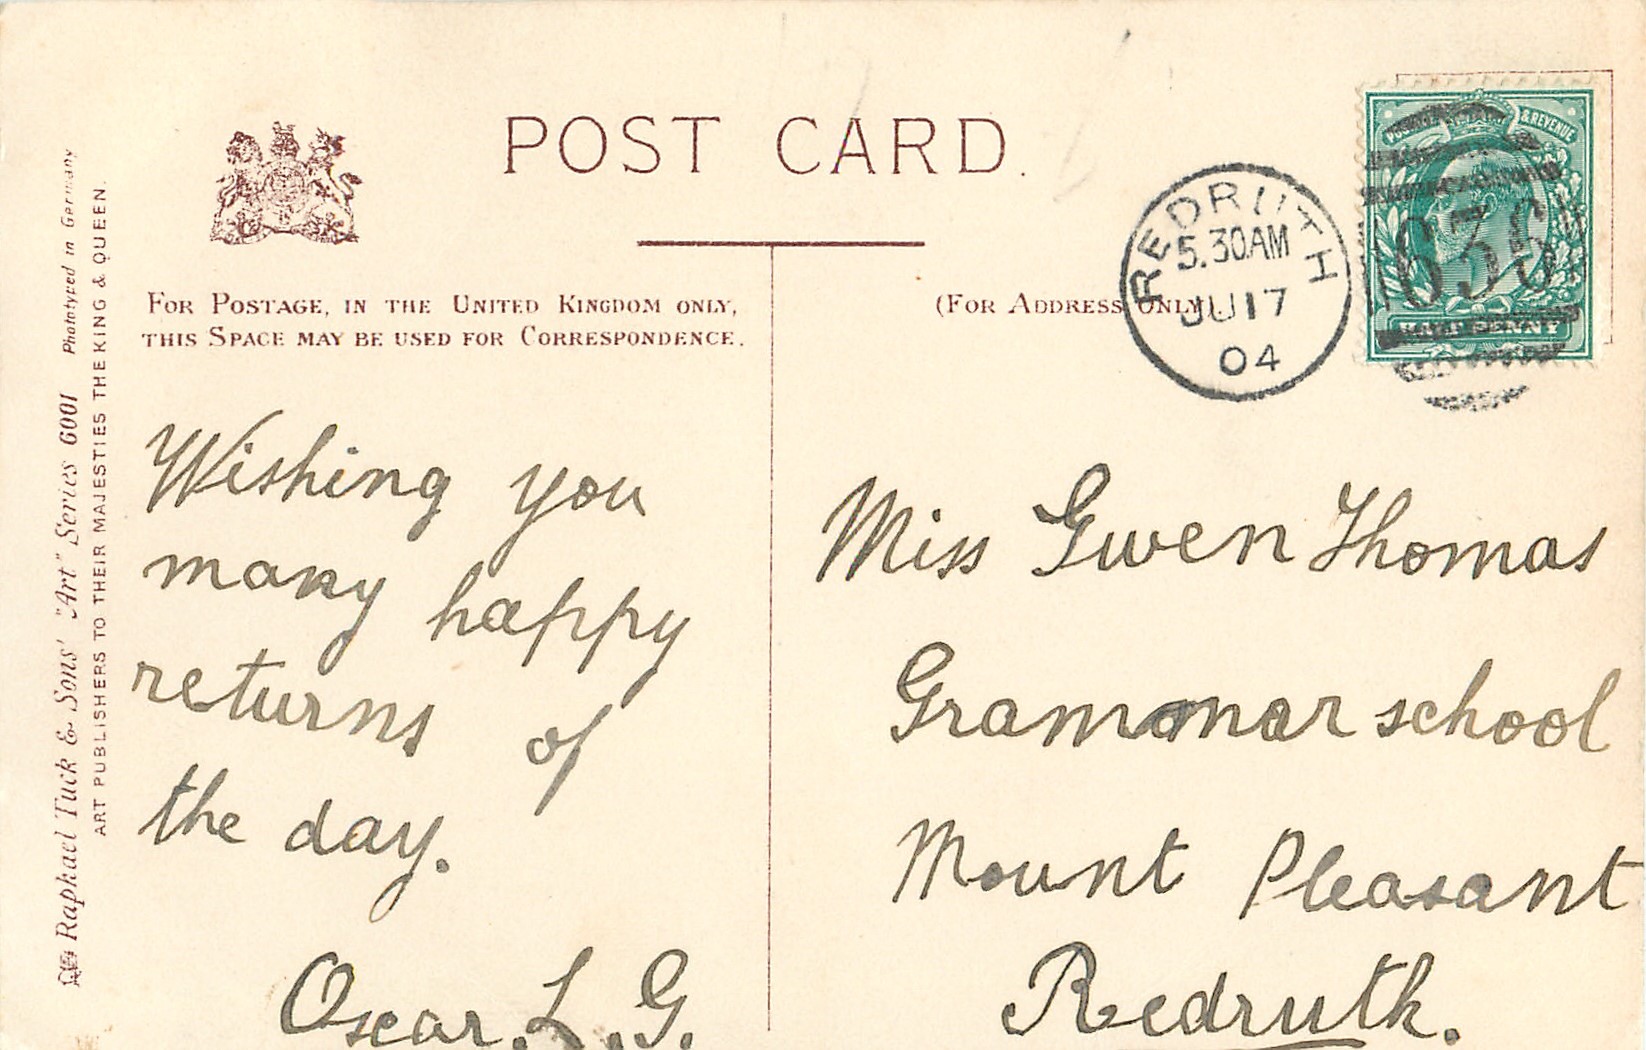 POST CARD.
FOR POSTAGE, IN THE UNITED KINGDOM ONLY,
THIS SPACE MAY BE USED FOR CORRESPONDENCE.
(FOR ADDRESS ONLY
REDRUTH
5.30AM
JU 17
04
& REVENUE
HALFPENNY
636
Wishing you
many happy
returns of
the day.
Oscar. L. G.
Miss Gwen Thomas
Grammar school
Mount Pleasant
Redruth.
Raphael Tuck & Sons' "Art" Series 6001 Phototyped in Germany
ART PUBLISHERS TO THEIR MAJESTIES THE KING & QUEEN.